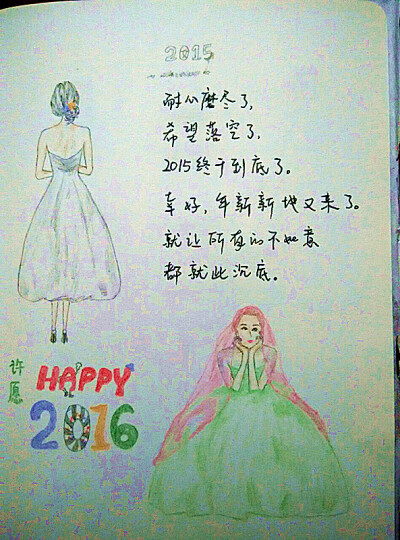 2015
耐心磨尽了,
希望落空了.
2015终于到底了。
幸好,年新新地又来了。
就让所有的不如意
都就此沉底.
许愿
HAPPY
2016